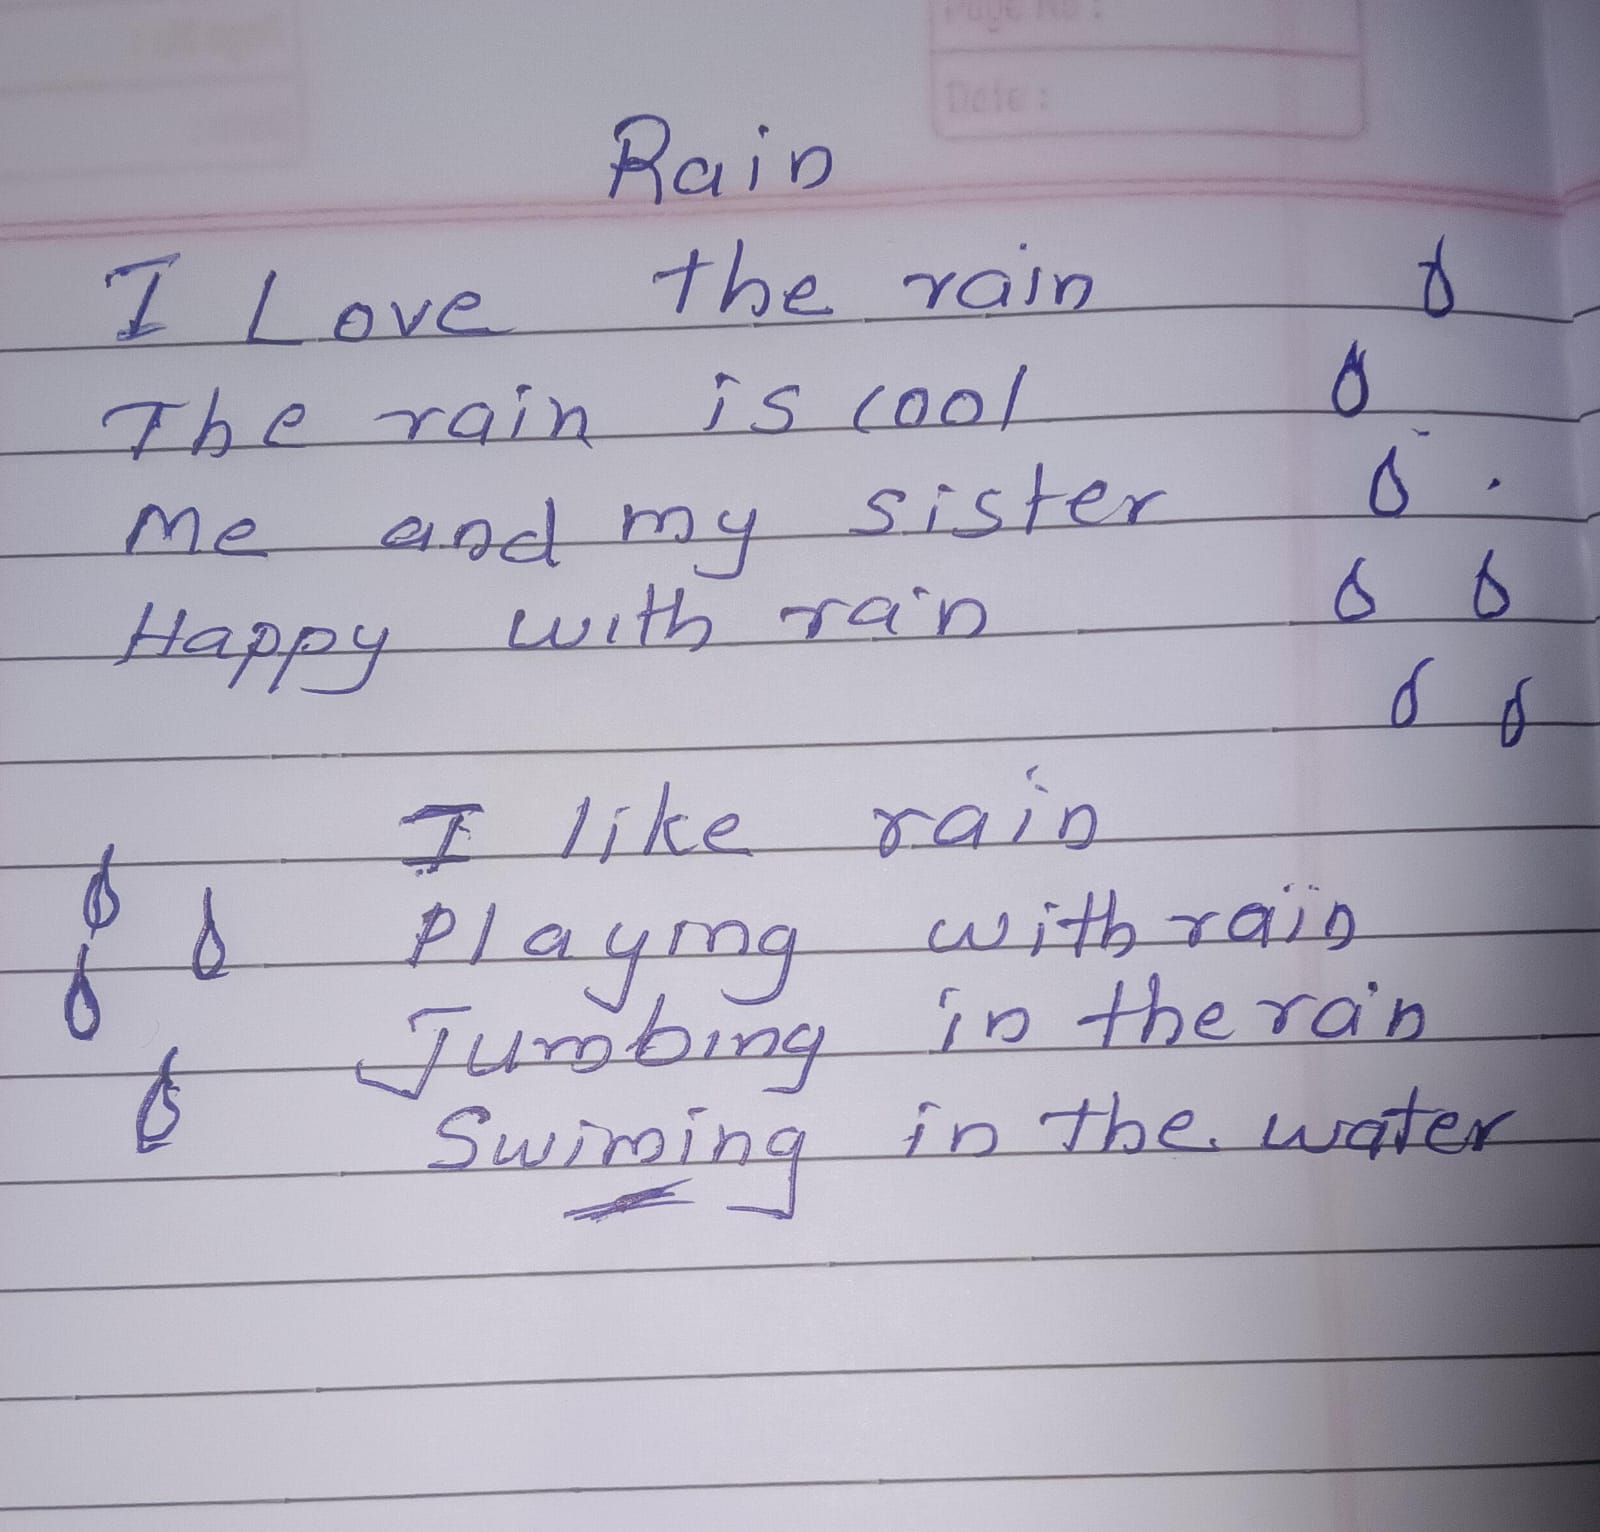 Page No :
Date :
Rain
I Love the rain
The rain is cool
Me and my sister
Happy with rain
I like rain
Playing with rain
Jumbing in the rain
Swiming in the water